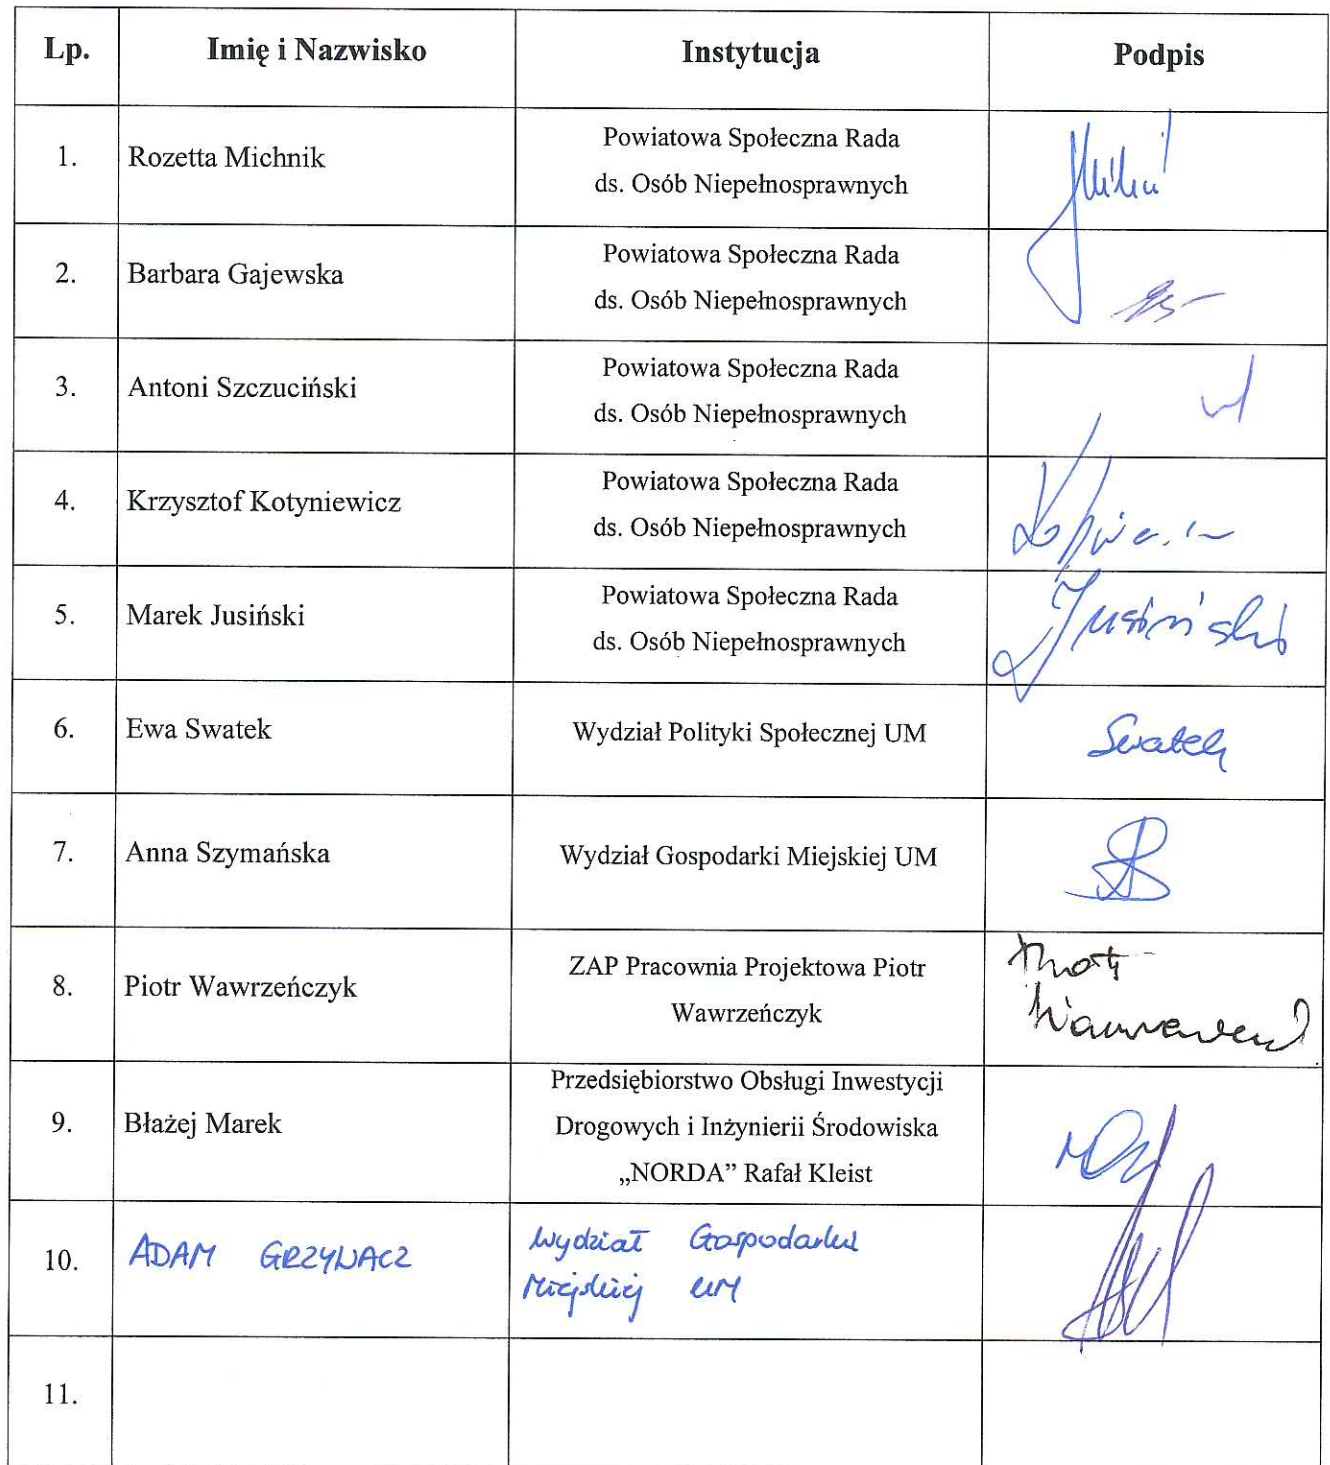 Lp. Imię i Nazwisko Instytucja Podpis
1. Rozetta Michnik Powiatowa Społeczna Rada
ds. Osób Niepełnosprawnych
2. Barbara Gajewska Powiatowa Społeczna Rada
ds. Osób Niepełnosprawnych
3. Antoni Szczuciński Powiatowa Społeczna Rada
ds. Osób Niepełnosprawnych
4. Krzysztof Kotyniewicz Powiatowa Społeczna Rada
ds. Osób Niepełnosprawnych
5. Marek Jusiński Powiatowa Społeczna Rada
ds. Osób Niepełnosprawnych
Jusiński
6. Ewa Swatek Wydział Polityki Społecznej UM Swatek
7. Anna Szymańska Wydział Gospodarki Miejskiej UM
8. Piotr Wawrzeńczyk ZAP Pracownia Projektowa Piotr
Wawrzeńczyk
Piotr
9. Błażej Marek Przedsiębiorstwo Obsługi Inwestycji
Drogowych i Inżynierii Środowiska
„NORDA” Rafał Kleist
10. ADAM GRZYWACZ Wydział Gospodarki
Miejskiej UM
11.